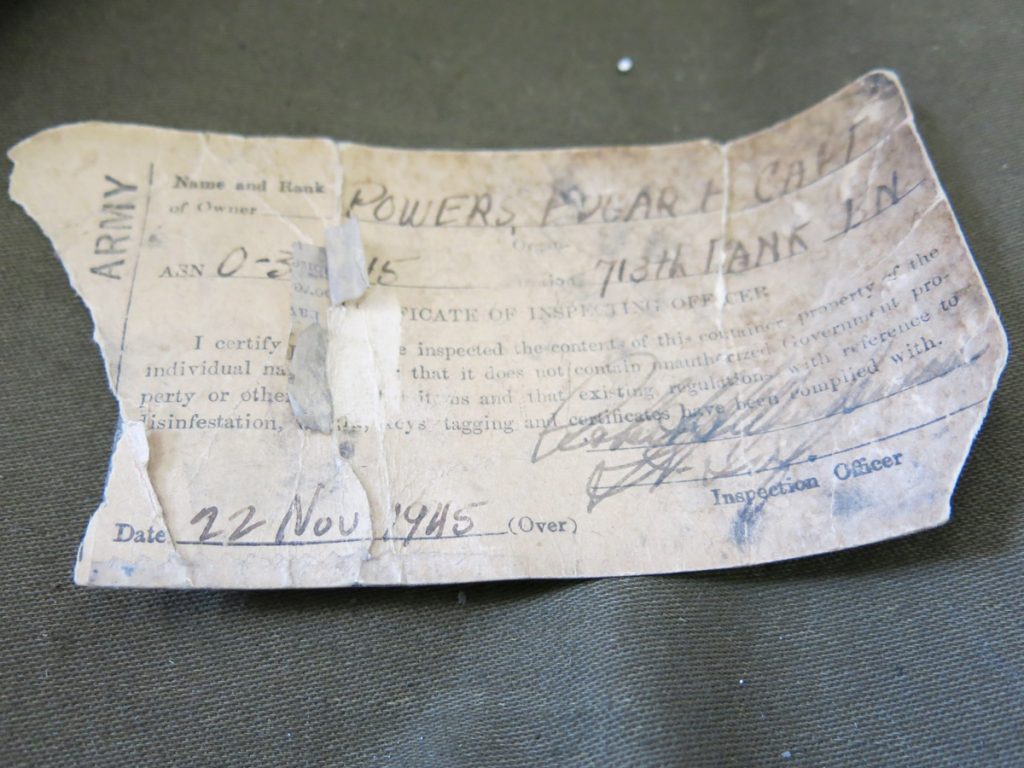 ARMY
Name and Rank
of Owner POWERS, EDGAR F CAPT
ASN O-3 45 713th TANK BN
FICATE OF INSPECTING OFFICER
I certify e inspected the contents of this container property of the
individual na that it does not contain unauthorized Government pro-
perty or other items and that existing regulations with reference to
disinfestation, keys tagging and certificates have been complied with.
Inspection Officer
Date 22 Nov 1945 (Over)